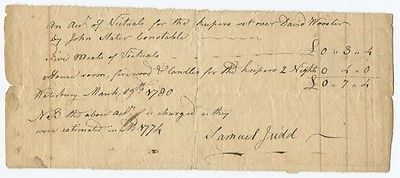 An Acct. of Victuals for the keepers set over David Wooster
by John Slater Constable
Five Meals of Victuals £ 0 " 3 " 4
House room, fire wood & Candles for the keepers 2 Nights 0 " 4 " 0
£ 0 " 7 " 4
Waterbury March 19th. 1780
NB the above acct. is charged as they
were estimated in 1774
Samuel Judd